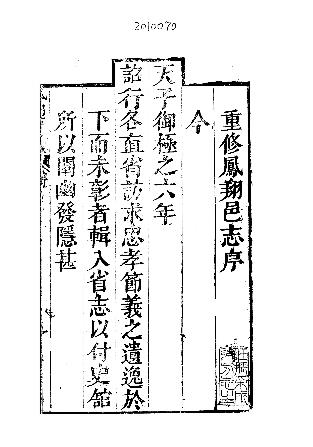 2010070
重修鳳翔邑志序
今
天子御極之六年
詔行各直省訪求忠孝節義之遺逸於
下而未彰者輯入省志以付史舘
所以闡幽發隱甚